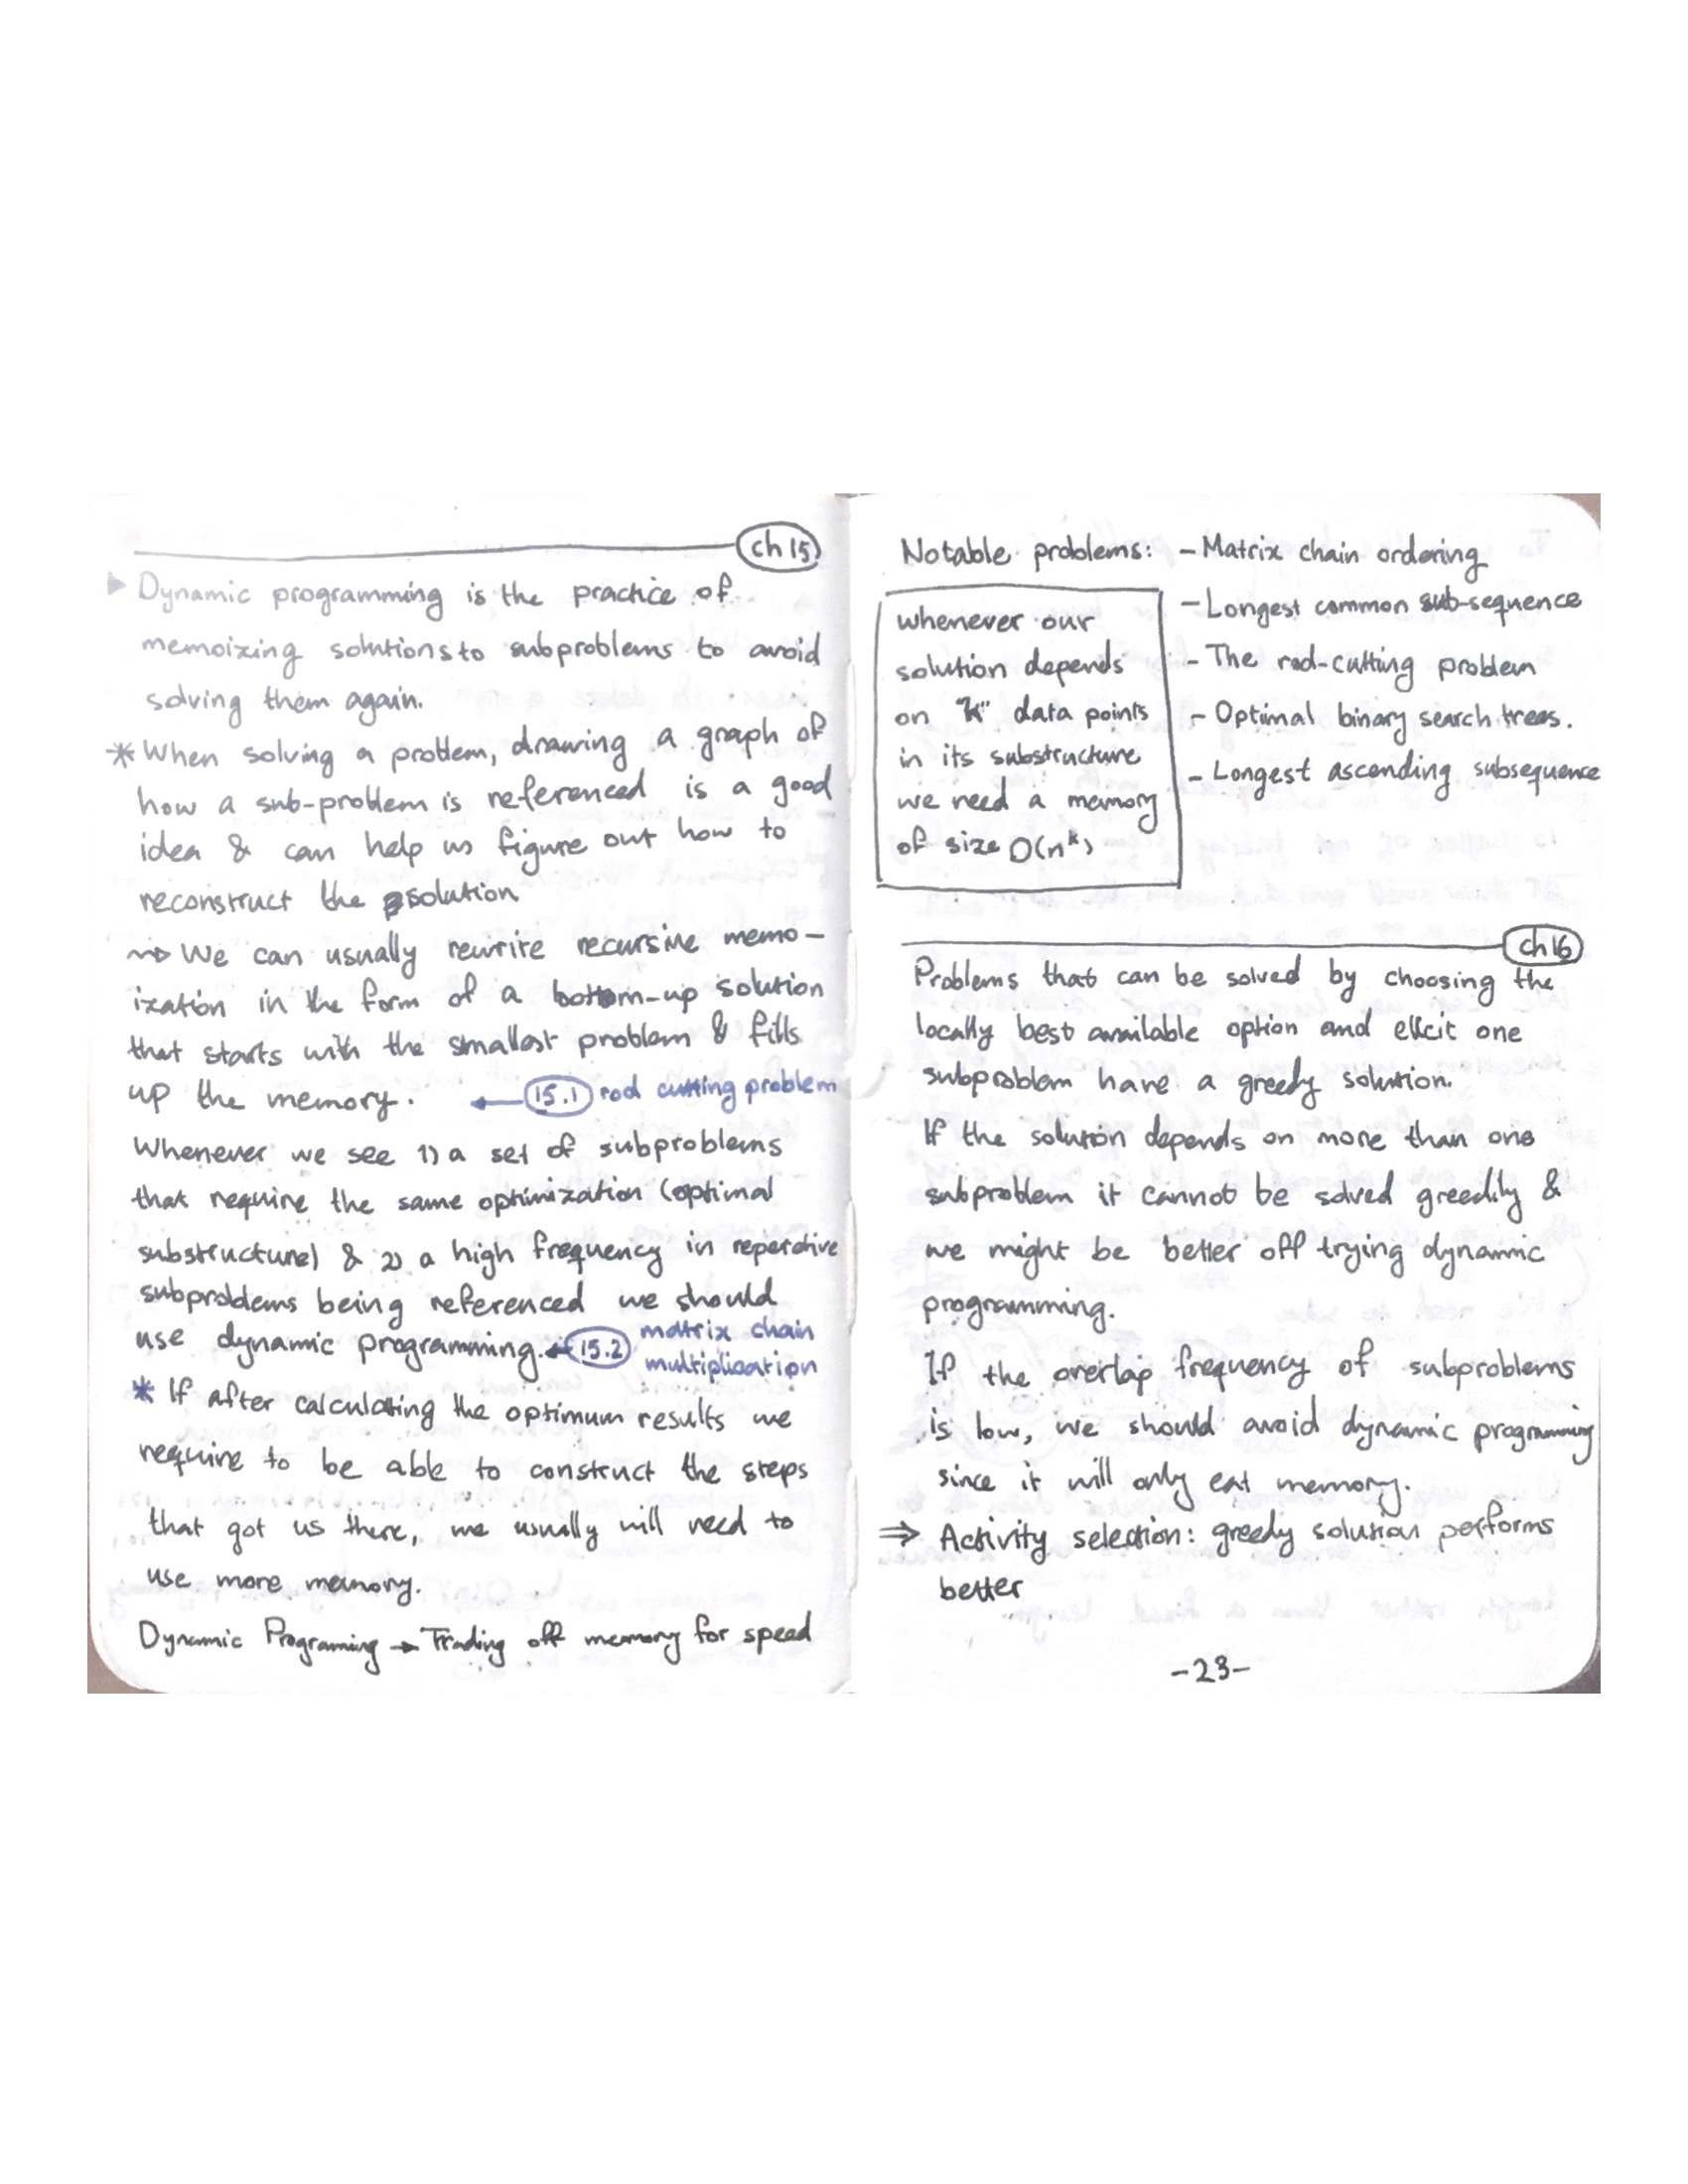 ch 15
Dynamic programming is the practice of
memoizing solutions to subproblems to avoid
solving them again.
* When solving a problem, drawing a graph of
how a sub-problem is referenced is a good
idea & can help us figure out how to
reconstruct the solution
→ We can usually rewrite recursive memo-
ization in the form of a bottom-up solution
that starts with the smallest problem & fills
up the memory. ← 15.1 rod cutting problem
Whenever we see 1) a set of subproblems
that require the same optimization (optimal
substructure) & 2) a high frequency in repetitive
subproblems being referenced we should
use dynamic programming. ← 15.2 matrix chain
multiplication
* If after calculating the optimum results we
require to be able to construct the steps
that got us there, we usually will need to
use more memory.
Dynamic Programing → Trading off memory for speed
Notable problems: - Matrix chain ordering
- Longest common sub-sequence
- The rod-cutting problem
- Optimal binary search trees.
- Longest ascending subsequence
whenever our
solution depends
on "k" data points
in its substructure
we need a memory
of size O(n^k)
ch 16
Problems that can be solved by choosing the
locally best available option and elicit one
subproblem have a greedy solution.
If the solution depends on more than one
subproblem it cannot be solved greedily &
we might be better off trying dynamic
programming.
If the overlap frequency of subproblems
is low, we should avoid dynamic programming
since it will only eat memory.
⇒ Activity selection: greedy solution performs
better
-23-